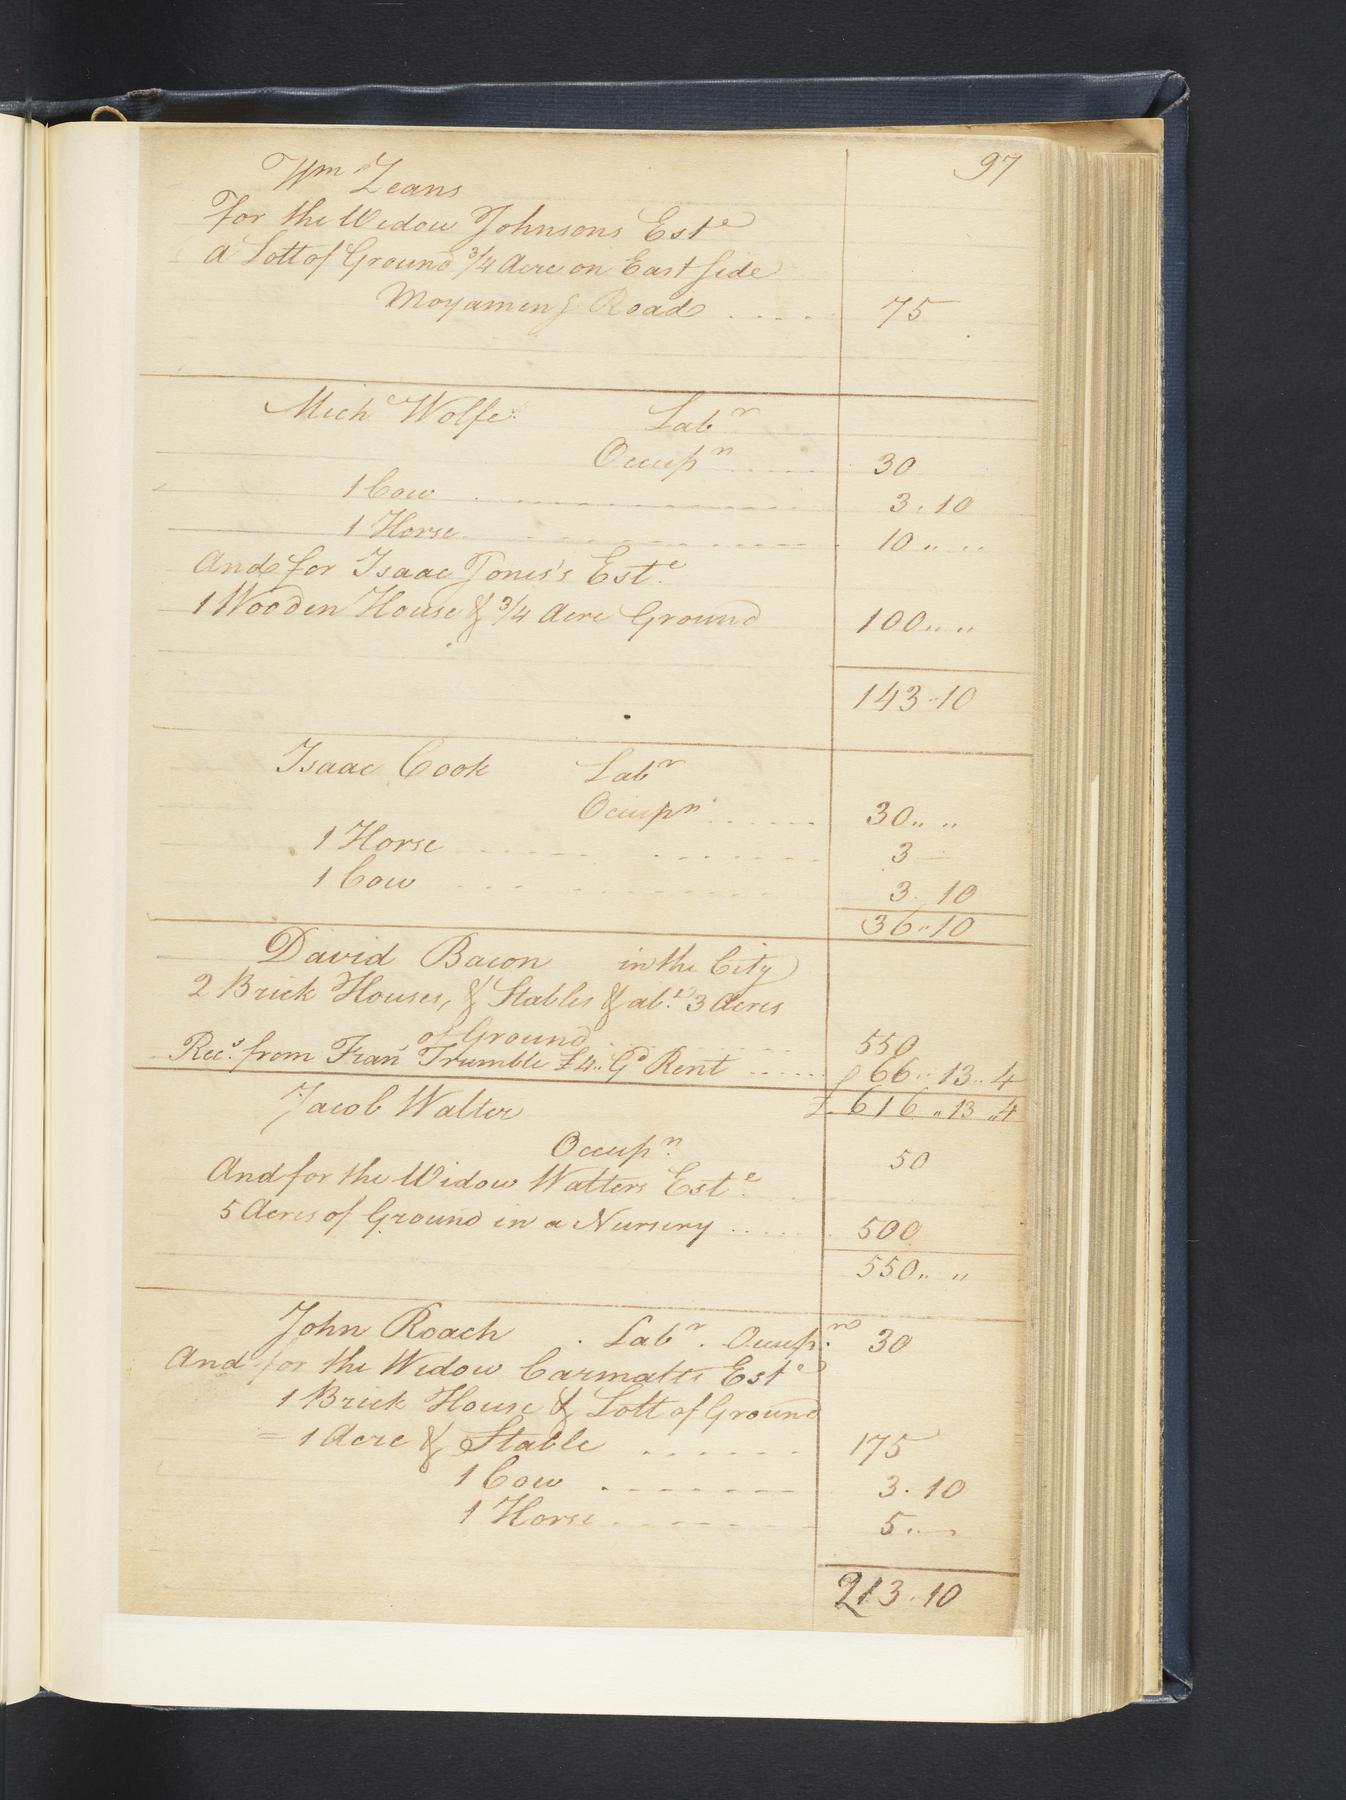 97
Wm Zeans
For the Widow Johnsons Este
a Lott of Ground 3/4 Acre on East side
Moyameng Road ..... 75
Mich Wolfe Labr
Occupn ..... 30
1 Cow ..... 3. 10
1 Horse ..... 10 " "
And for Isaac Jones's Este
1 Wooden House & 3/4 Acre Ground 100 " "
143. 10
Isaac Cook Labr
Occupn ..... 30 " "
1 Horse ..... 3 —
1 Cow ..... 3. 10
36 " 10
David Bacon in the City
2 Brick Houses, & Stables & abt 3 Acres
of Ground ..... 550
Recs from Fran Trumble £4 " Gd Rent ..... 66 " 13 " 4
£ 616 " 13 " 4
Jacob Walter
Occupn 50
And for the Widow Walters Este
5 Acres of Ground in a Nursery ..... 500
550 " "
John Roach . Labr . Occupn 30
And for the Widow Carmalts Este
1 Brick House & Lott of Ground
= 1 Acre & Stable ..... 175
1 Cow ..... 3. 10
1 Horse ..... 5 " —
213. 10